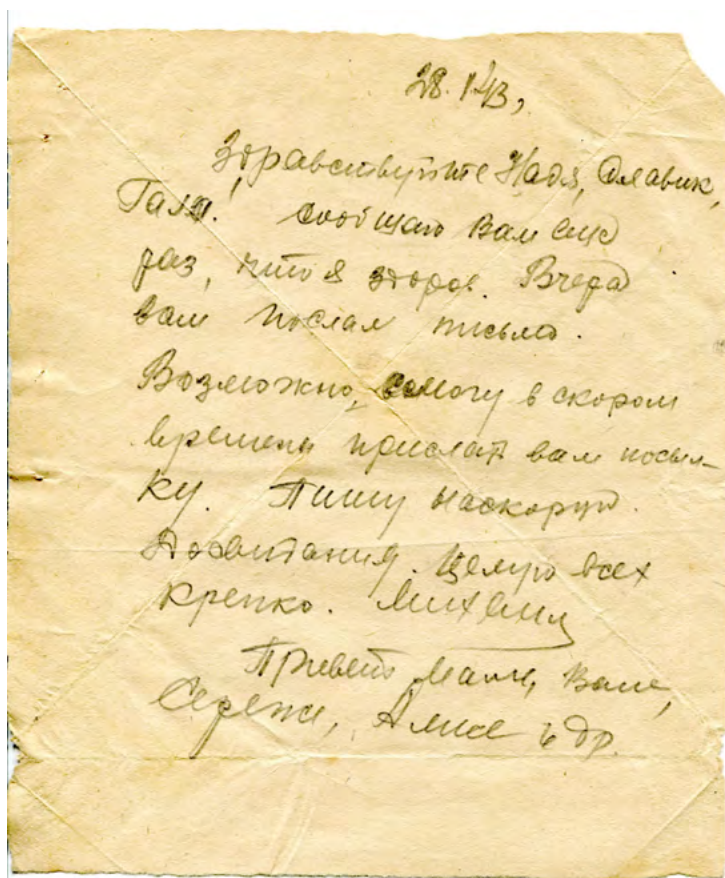 28. 1 43,
Здравствуйте Надя, Славик,
Галя! сообщаю Вам еще
раз, что я здоров. Вчера
вам послал письмо.
Возможно, смогу в скором
времени прислать вам посыл-
ку. Пишу наскоро.
Досвитания. Целую всех
крепко. Михаил
Привет маме, Ване,
Сереже, и др.